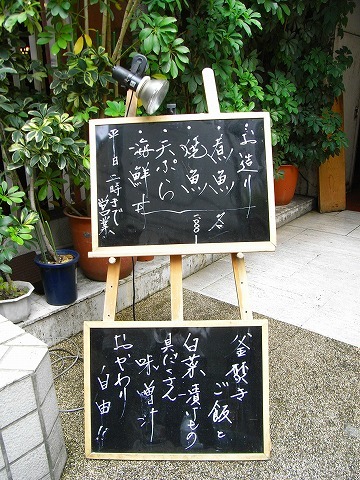 ・お造り
・煮魚
・焼魚
・天ぷら
・海鮮丼
各
平日二時まで
営業
釜焚きご飯と
白菜漬けもの
具だくさん
味噌汁
おかわり
自由!!